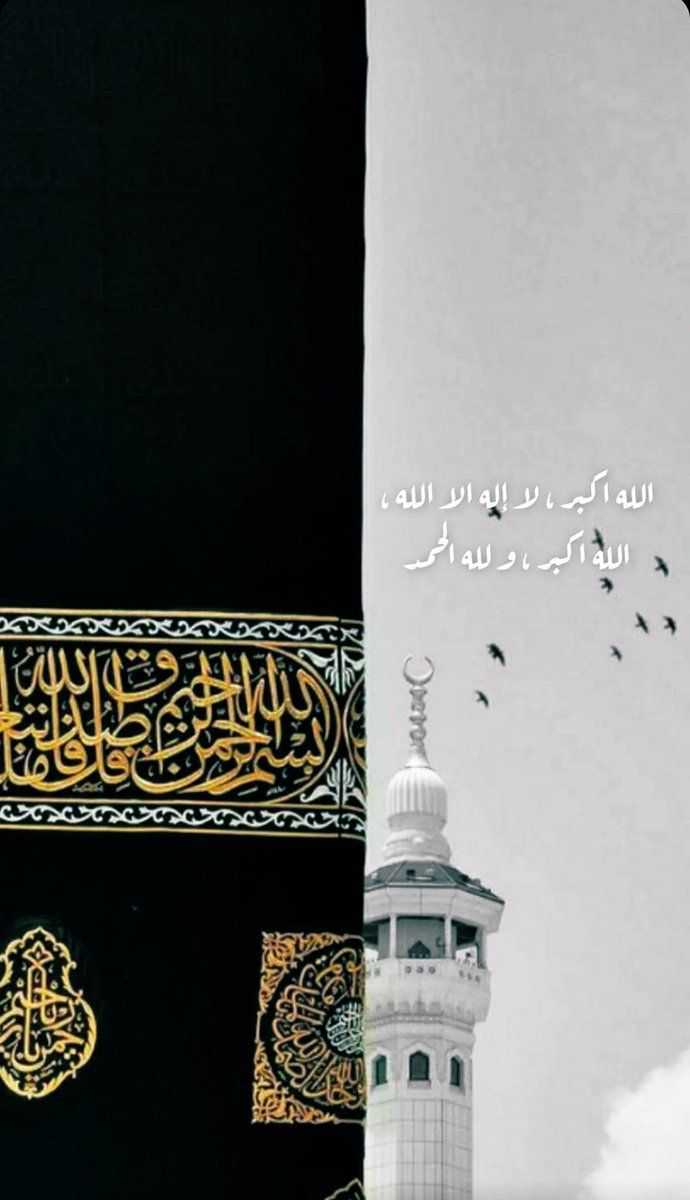 الله اكبر ، لا إله الا الله ،
الله اكبر ، و لله الحمد
بسم الله الرحمن الرحيم قل صدق الله
يا رحمن يا رحيم